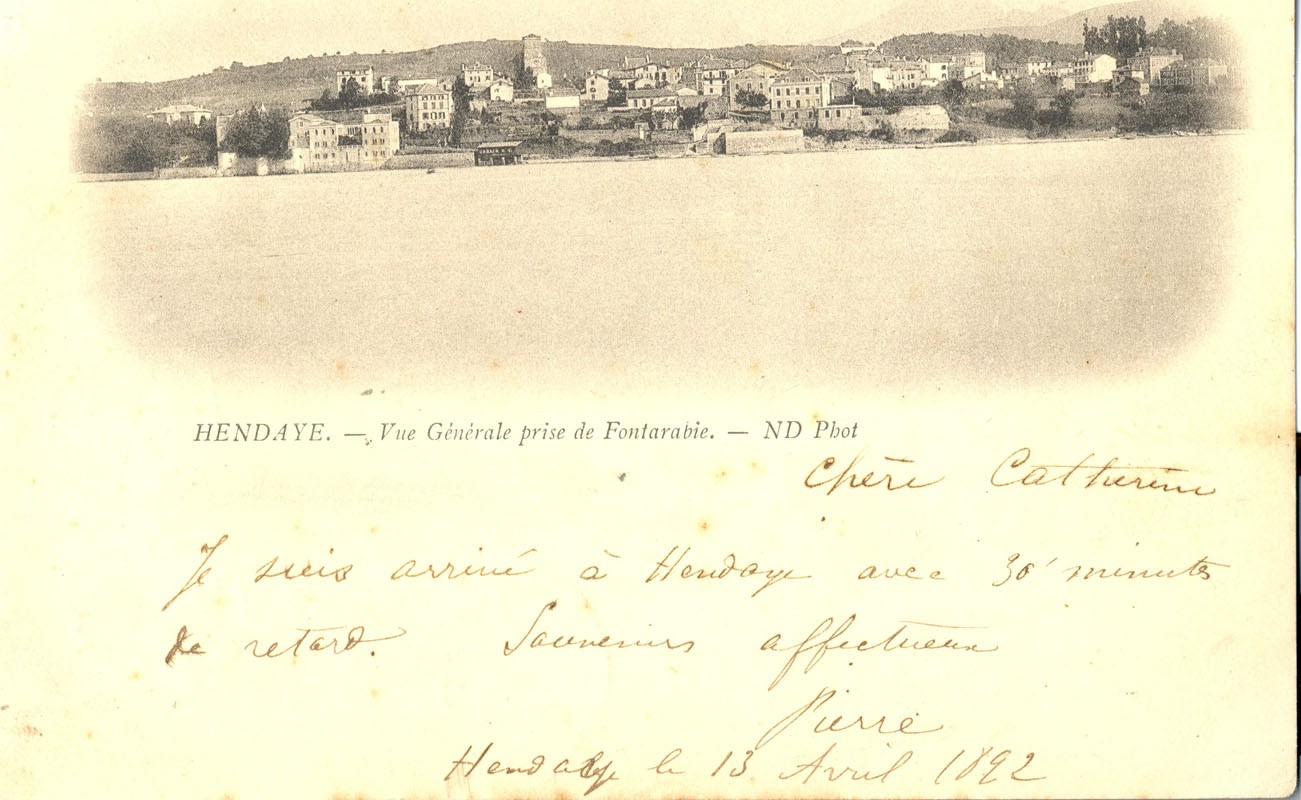 HENDAYE. — Vue Générale prise de Fontarabie. — ND Phot
Chère Catherine
Je suis arrivé à Hendaye avec 30' minutes
de retard. Souvenirs affectueux
Pierre
Hendaye le 13 Avril 1892